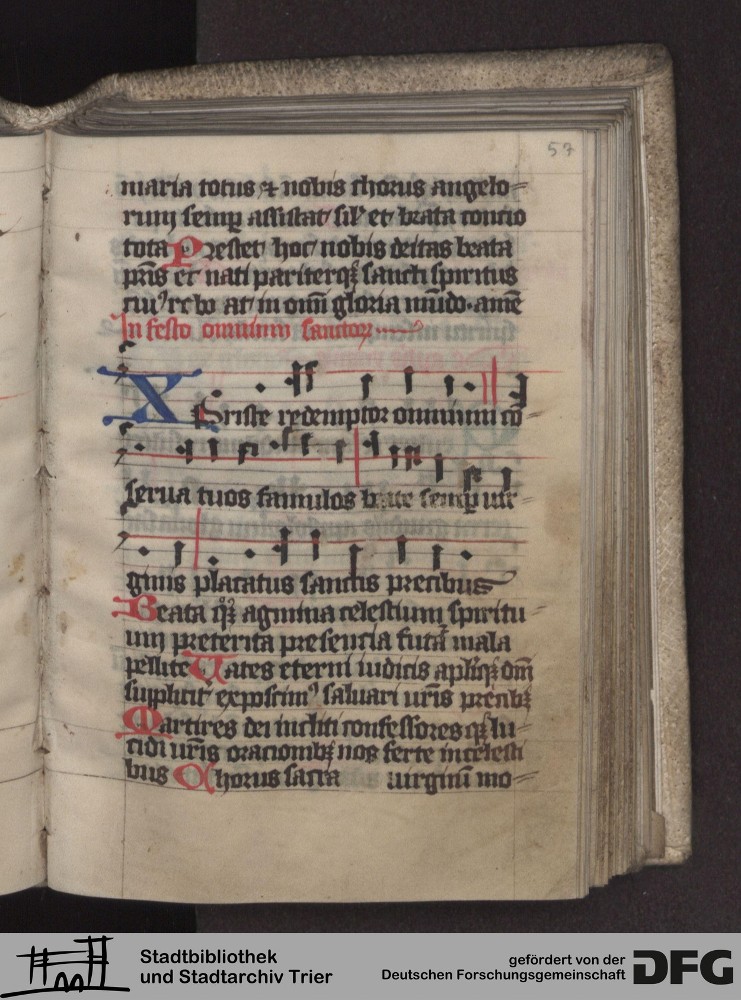 57
maria totus ⁊ nobis chorus angelo=
rum semp assistat sil' et beata concio
tota Prestet hoc nobis deitas beata
pr̄is et nati pariterqꝫ sancti spiritus
cui9 rebo at in om̄i gloria mūdo. amē
In festo omnium sanctoꝝ
Xpriste redemptor omnium cō=
serua tuos famulos beate semꝑ uir
ginis placatus sanctis precibus
Beata qꝫ agmina celestium spiritu=
um preterita presencia futā mala
pellite Uates eterni iudicis apliqꝫ dn̄i
suppliciť exposcim9 saluari ur̄is precibꝫ
Martires dei incliti confessoresqꝫ lu=
cidi ur̄is oracionibꝫ nos ferte in celesti
bus Chorus sacra uirginū mo=
Stadtbibliothek
und Stadtarchiv Trier
gefördert von der
Deutschen Forschungsgemeinschaft DFG